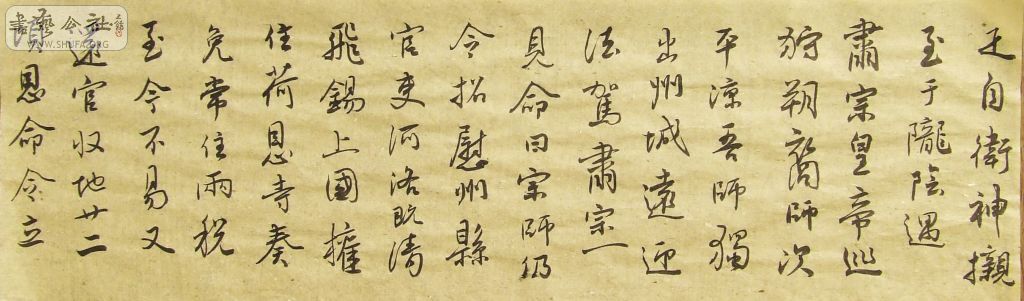 足自衛神櫬
至于隴陰遇
肅宗皇帝巡
狩朔裔師次
平涼吾師獨
出州城遠迎
法駕肅宗一
見命曰宗師仍
令招慰州縣
官吏河洛既清
飛錫上國權
住荷恩寺奏
免常住兩稅
至今不易又
還官收地廿二
頃恩命令立
書藝公社
WWW.SHUFA.ORG